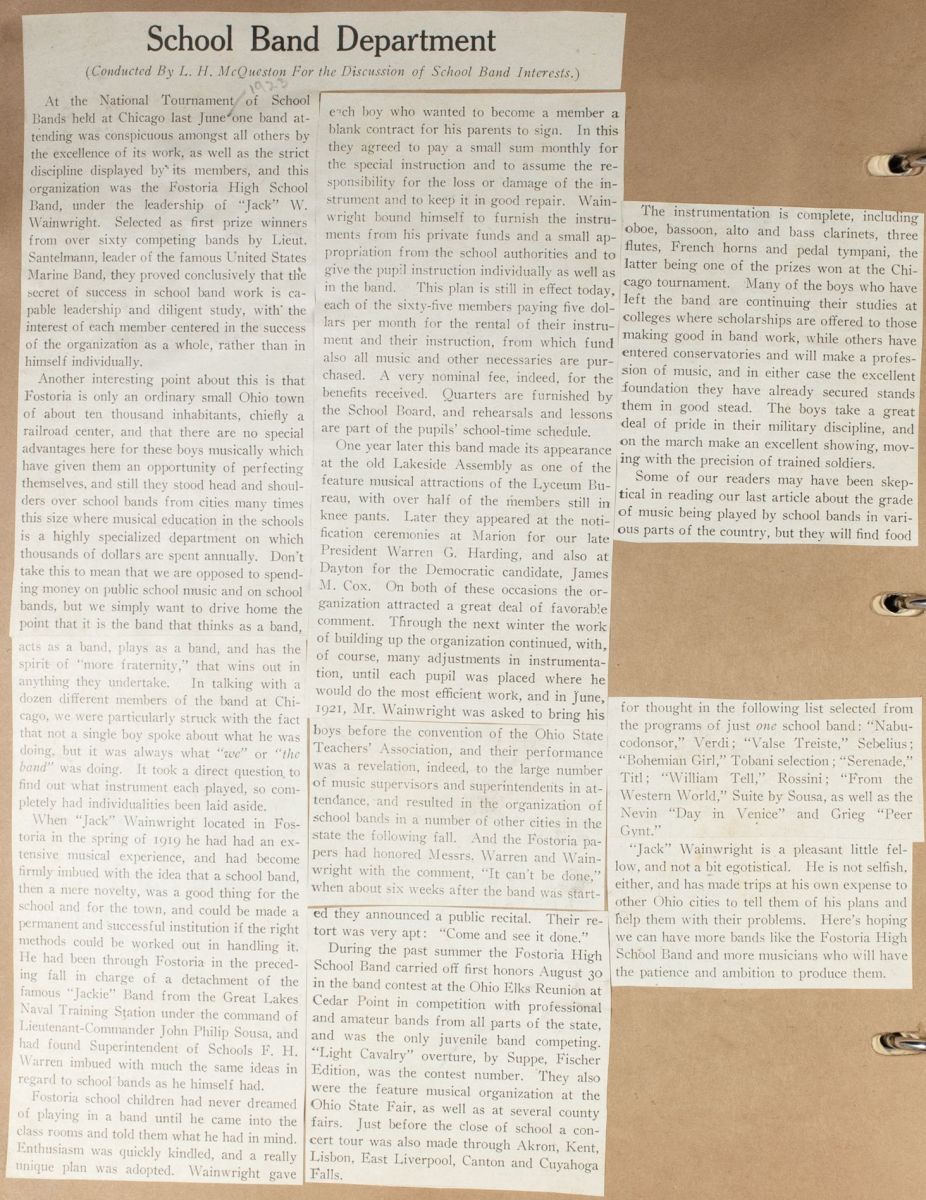 School Band Department
(Conducted By L. H. McQueston For the Discussion of School Band Interests.)
1923
At the National Tournament of School
Bands held at Chicago last June one band at-
tending was conspicuous amongst all others by
the excellence of its work, as well as the strict
discipline displayed by its members, and this
organization was the Fostoria High School
Band, under the leadership of "Jack" W.
Wainwright. Selected as first prize winners
from over sixty competing bands by Lieut.
Santelmann, leader of the famous United States
Marine Band, they proved conclusively that the
secret of success in school band work is ca-
pable leadership and diligent study, with the
interest of each member centered in the success
of the organization as a whole, rather than in
himself individually.
Another interesting point about this is that
Fostoria is only an ordinary small Ohio town
of about ten thousand inhabitants, chiefly a
railroad center, and that there are no special
advantages here for these boys musically which
have given them an opportunity of perfecting
themselves, and still they stood head and shoul-
ders over school bands from cities many times
this size where musical education in the schools
is a highly specialized department on which
thousands of dollars are spent annually. Don't
take this to mean that we are opposed to spend-
ing money on public school music and on school
bands, but we simply want to drive home the
point that it is the band that thinks as a band,
acts as a band, plays as a band, and has the
spirit of "more fraternity," that wins out in
anything they undertake. In talking with a
dozen different members of the band at Chi-
cago, we were particularly struck with the fact
that not a single boy spoke about what he was
doing, but it was always what "we" or "the
band" was doing. It took a direct question to
find out what instrument each played, so com-
pletely had individualities been laid aside.
When "Jack" Wainwright located in Fos-
toria in the spring of 1919 he had had an ex-
tensive musical experience, and had become
firmly imbued with the idea that a school band,
then a mere novelty, was a good thing for the
school and for the town, and could be made a
permanent and successful institution if the right
methods could be worked out in handling it.
He had been through Fostoria in the preced-
ing fall in charge of a detachment of the
famous "Jackie" Band from the Great Lakes
Naval Training Station under the command of
Lieutenant-Commander John Philip Sousa, and
had found Superintendent of Schools F. H.
Warren imbued with much the same ideas in
regard to school bands as he himself had.
Fostoria school children had never dreamed
of playing in a band until he came into the
class rooms and told them what he had in mind.
Enthusiasm was quickly kindled, and a really
unique plan was adopted. Wainwright gave
each boy who wanted to become a member a
blank contract for his parents to sign. In this
they agreed to pay a small sum monthly for
the special instruction and to assume the re-
sponsibility for the loss or damage of the in-
strument and to keep it in good repair. Wain-
wright bound himself to furnish the instru-
ments from his private funds and a small ap-
propriation from the school authorities and to
give the pupil instruction individually as well as
in the band. This plan is still in effect today,
each of the sixty-five members paying five dol-
lars per month for the rental of their instru-
ment and their instruction, from which fund
also all music and other necessaries are pur-
chased. A very nominal fee, indeed, for the
benefits received. Quarters are furnished by
the School Board, and rehearsals and lessons
are part of the pupils' school-time schedule.
One year later this band made its appearance
at the old Lakeside Assembly as one of the
feature musical attractions of the Lyceum Bu-
reau, with over half of the members still in
knee pants. Later they appeared at the noti-
fication ceremonies at Marion for our late
President Warren G. Harding, and also at
Dayton for the Democratic candidate, James
M. Cox. On both of these occasions the or-
ganization attracted a great deal of favorable
comment. Through the next winter the work
of building up the organization continued, with,
of course, many adjustments in instrumenta-
tion, until each pupil was placed where he
would do the most efficient work, and in June,
1921, Mr. Wainwright was asked to bring his
boys before the convention of the Ohio State
Teachers' Association, and their performance
was a revelation, indeed, to the large number
of music supervisors and superintendents in at-
tendance, and resulted in the organization of
school bands in a number of other cities in the
state the following fall. And the Fostoria pa-
pers had honored Messrs. Warren and Wain-
wright with the comment, "It can't be done,"
when about six weeks after the band was start-
ed they announced a public recital. Their re-
tort was very apt: "Come and see it done."
During the past summer the Fostoria High
School Band carried off first honors August 30
in the band contest at the Ohio Elks Reunion at
Cedar Point in competition with professional
and amateur bands from all parts of the state,
and was the only juvenile band competing.
"Light Cavalry" overture, by Suppe, Fischer
Edition, was the contest number. They also
were the feature musical organization at the
Ohio State Fair, as well as at several county
fairs. Just before the close of school a con-
cert tour was also made through Akron, Kent,
Lisbon, East Liverpool, Canton and Cuyahoga
Falls.
The instrumentation is complete, including
oboe, bassoon, alto and bass clarinets, three
flutes, French horns and pedal tympani, the
latter being one of the prizes won at the Chi-
cago tournament. Many of the boys who have
left the band are continuing their studies at
colleges where scholarships are offered to those
making good in band work, while others have
entered conservatories and will make a profes-
sion of music, and in either case the excellent
foundation they have already secured stands
them in good stead. The boys take a great
deal of pride in their military discipline, and
on the march make an excellent showing, mov-
ing with the precision of trained soldiers.
Some of our readers may have been skep-
tical in reading our last article about the grade
of music being played by school bands in vari-
ous parts of the country, but they will find food
for thought in the following list selected from
the programs of just one school band: "Nabu-
codonsor," Verdi; "Valse Treiste," Sebelius;
"Bohemian Girl," Tobani selection; "Serenade,"
Titl; "William Tell," Rossini; "From the
Western World," Suite by Sousa, as well as the
Nevin "Day in Venice" and Grieg "Peer
Gynt."
"Jack" Wainwright is a pleasant little fel-
low, and not a bit egotistical. He is not selfish,
either, and has made trips at his own expense to
other Ohio cities to tell them of his plans and
help them with their problems. Here's hoping
we can have more bands like the Fostoria High
School Band and more musicians who will have
the patience and ambition to produce them.